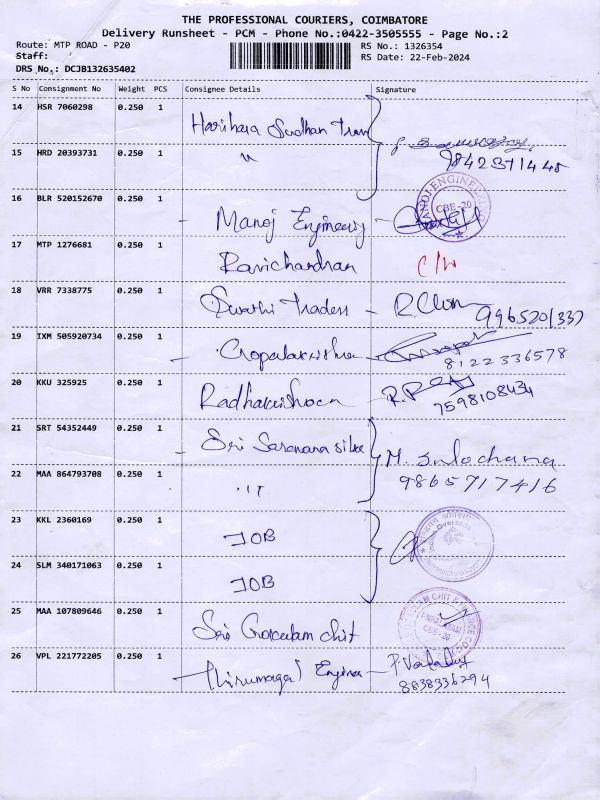 THE PROFESSIONAL COURIERS, COIMBATORE
Delivery Runsheet - PCM - Phone No.:0422-3505555 - Page No.:2
Route: MTP ROAD - P20
RS No.: 1326354
Staff:
RS Date: 22-Feb-2024
DRS No.: DCJB132635402
S No Consignment No Weight PCS Consignee Details Signature
14 HSR 7060298 0.250 1 Harihara Sudhan Tran
15 HRD 20393731 0.250 1 "
9842311448
16 BLR 520152670 0.250 1 - Manoj Engineery -
MANOJ ENGINEERING
CBE-20
17 MTP 1276681 0.250 1 Ravichandran
18 VRR 7338775 0.250 1 Swathi Traders -
9965201337
19 IXM 505920734 0.250 1 - Gopalakrishna -
8122336578
20 KKU 325925 0.250 1 Radhakrishnan -
7598108434
21 SRT 54352449 0.250 1 - Sri Saranana silks
M. Sulochana
22 MAA 864793708 0.250 1 "
9865717416
23 KKL 2360169 0.250 1 IOB
Indian Overseas
24 SLM 340171063 0.250 1 IOB
25 MAA 107809646 0.250 1 Sri Gokulam chit
CBE-20
26 VPL 221772205 0.250 1 - Thirumagal Engineer -
8838336294